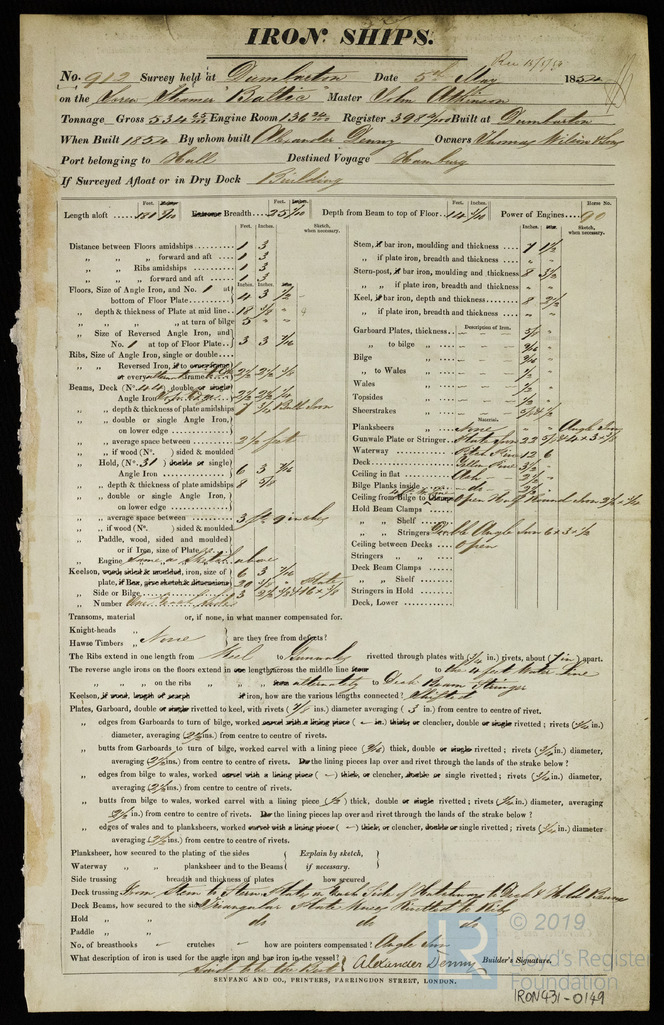 IRON SHIPS.
No. 912 Survey held at Dumbarton Date 5th May 1854
on the Screw Steamer "Baltic" Master John Atkinson
Tonnage Gross 534 Engine Room 136 Register 398 Built at Dumbarton
When Built 1854 By whom built Alexander Denny Owners Thomas Wilson & Sons
Port belonging to Hull Destined Voyage Hamburg
If Surveyed Afloat or in Dry Dock Building
Feet. Feet. Feet. Horse No.
Length aloft Extreme Breadth 25 Depth from Beam to top of Floor 14 Power of Engines 90
Feet. Inches. Sketch, when necessary. Inches. Sketch, when necessary.
Distance between Floors amidships 1 3
„ „ „ forward and aft 1 3
„ „ Ribs amidships 1 3
„ „ „ forward and aft 1 3
Floors, Size of Angle Iron, and No. 1 at bottom of Floor Plate 4 3 1/2
„ depth & thickness of Plate at mid line 18
„ „ „ at turn of bilge 5 „ „
„ Size of Reversed Angle Iron, and No. 1 at top of Floor Plate 3 3
Ribs, Size of Angle Iron, single or double
„ Reversed Iron, if to every frame or over alternate frame 2½ 2½
Beams, Deck (No. 44) double or single Angle Iron 2½ 2½
„ depth & thickness of plate amidships 7 Bulb Iron
„ double or single Angle Iron, on lower edge
„ average space between 2½ feet
„ if wood (No. ) sided & moulded
„ Hold, (No. 31) double or single Angle Iron 6 3
„ depth & thickness of plate amidships 8
„ double or single Angle Iron, on lower edge
„ average space between 3 ft 9 inches
„ if wood (No. ) sided & moulded
„ Paddle, wood, sided and moulded or if Iron, size of Plate
„ Engine above
Keelson, wood, sided & moulded, iron, size of 6 3
plate, if Box, give sketch & dimensions 20 Plate
„ Side or Bilge 3
„ Number
Stem, if bar iron, moulding and thickness 7 1½
„ if plate iron, breadth and thickness „ „
Stern-post, if bar iron, moulding and thickness 8 3½
„ „ if plate iron, breadth and thickness „ „
Keel, if bar iron, depth and thickness 8 2½
„ if plate iron, breadth and thickness „ „
Garboard Plates, thickness Description of Iron.
„ to bilge „
Bilge „
„ to Wales „
Wales „
Topsides „
Sheerstrakes „
Material.
Planksheers „ None Angle Iron
Gunwale Plate or Stringer Plate Iron 22
Waterway „ Pitch Pine 12 6
Deck „ Yellow Pine 3½
Ceiling in flat „ Ash 2½
Bilge Planks inside „ do 2½
Ceiling from Bilge to Clamp Open
Hold Beam Clamps
„ „ Shelf
„ „ Stringers Double Angle Iron 6 x 3 x ½
Ceiling between Decks Open
Stringers „ „
Deck Beam Clamps
„ „ Shelf
Stringers in Hold
Deck, Lower
Transoms, material or, if none, in what manner compensated for.
Knight-heads „
Hawse Timbers „ None are they free from defects?
The Ribs extend in one length from Keel to Gunwale rivetted through plates with ( in.) rivets, about (7 in) apart.
The reverse angle irons on the floors extend in one length across the middle line to the 4 feet Water Line
„ „ „ on the ribs „ „ alternately to Deck Beam Stringer
Keelson, if wood, length of scarph if iron, how are the various lengths connected? Shifted
Plates, Garboard, double or single rivetted to keel, with rivets (7/8 ins.) diameter averaging (3 in.) from centre to centre of rivet.
„ edges from Garboards to turn of bilge, worked carvel with a lining piece ( – in.) thick, or clencher, double or single rivetted; rivets ( in.)
diameter, averaging (2½ ins.) from centre to centre of rivets.
„ butts from Garboards to turn of bilge, worked carvel with a lining piece ( ) thick, double or single rivetted; rivets ( in.) diameter,
averaging (2½ ins.) from centre to centre of rivets. Do the lining pieces lap over and rivet through the lands of the strake below?
„ edges from bilge to wales, worked carvel with a lining piece ( – ) thick, or clencher, double or single rivetted; rivets ( in.) diameter
averaging (2½ ins.) from centre to centre of rivets.
„ butts from bilge to wales, worked carvel with a lining piece ( ) thick, double or single rivetted; rivets ( in.) diameter, averaging
( in.) from centre to centre of rivets. Do the lining pieces lap over and rivet through the lands of the strake below?
„ edges of wales and planksheers, worked carvel with a lining piece ( – ) thick, or clencher, double or single rivetted; rivets ( in.) diameter
averaging (2½ ins.) from centre to centre of rivets.
Planksheer, how secured to the plating of the sides Explain by sketch,
Waterway „ „ planksheer and to the Beams if necessary.
Side trussing breadth and thickness of plates how secured
Deck trussing From Stem to Stern Plates on each side of Hatchways to Deck & Hold Beams
Deck Beams, how secured to the side Triangular Plate Knees Rivetted to Ribs
Hold „ „ do do do
Paddle „ „
No. of breasthooks „ crutches „ how are pointers compensated? Angle Iron
What description of iron is used for the angle iron and bar iron in the vessel? Alexander Denny Builder's Signature.
to be the Best
SEYFANG AND CO., PRINTERS, FARRINGDON STREET, LONDON.
© 2019,
Lloyd's Register
Foundation
IRON431-0149